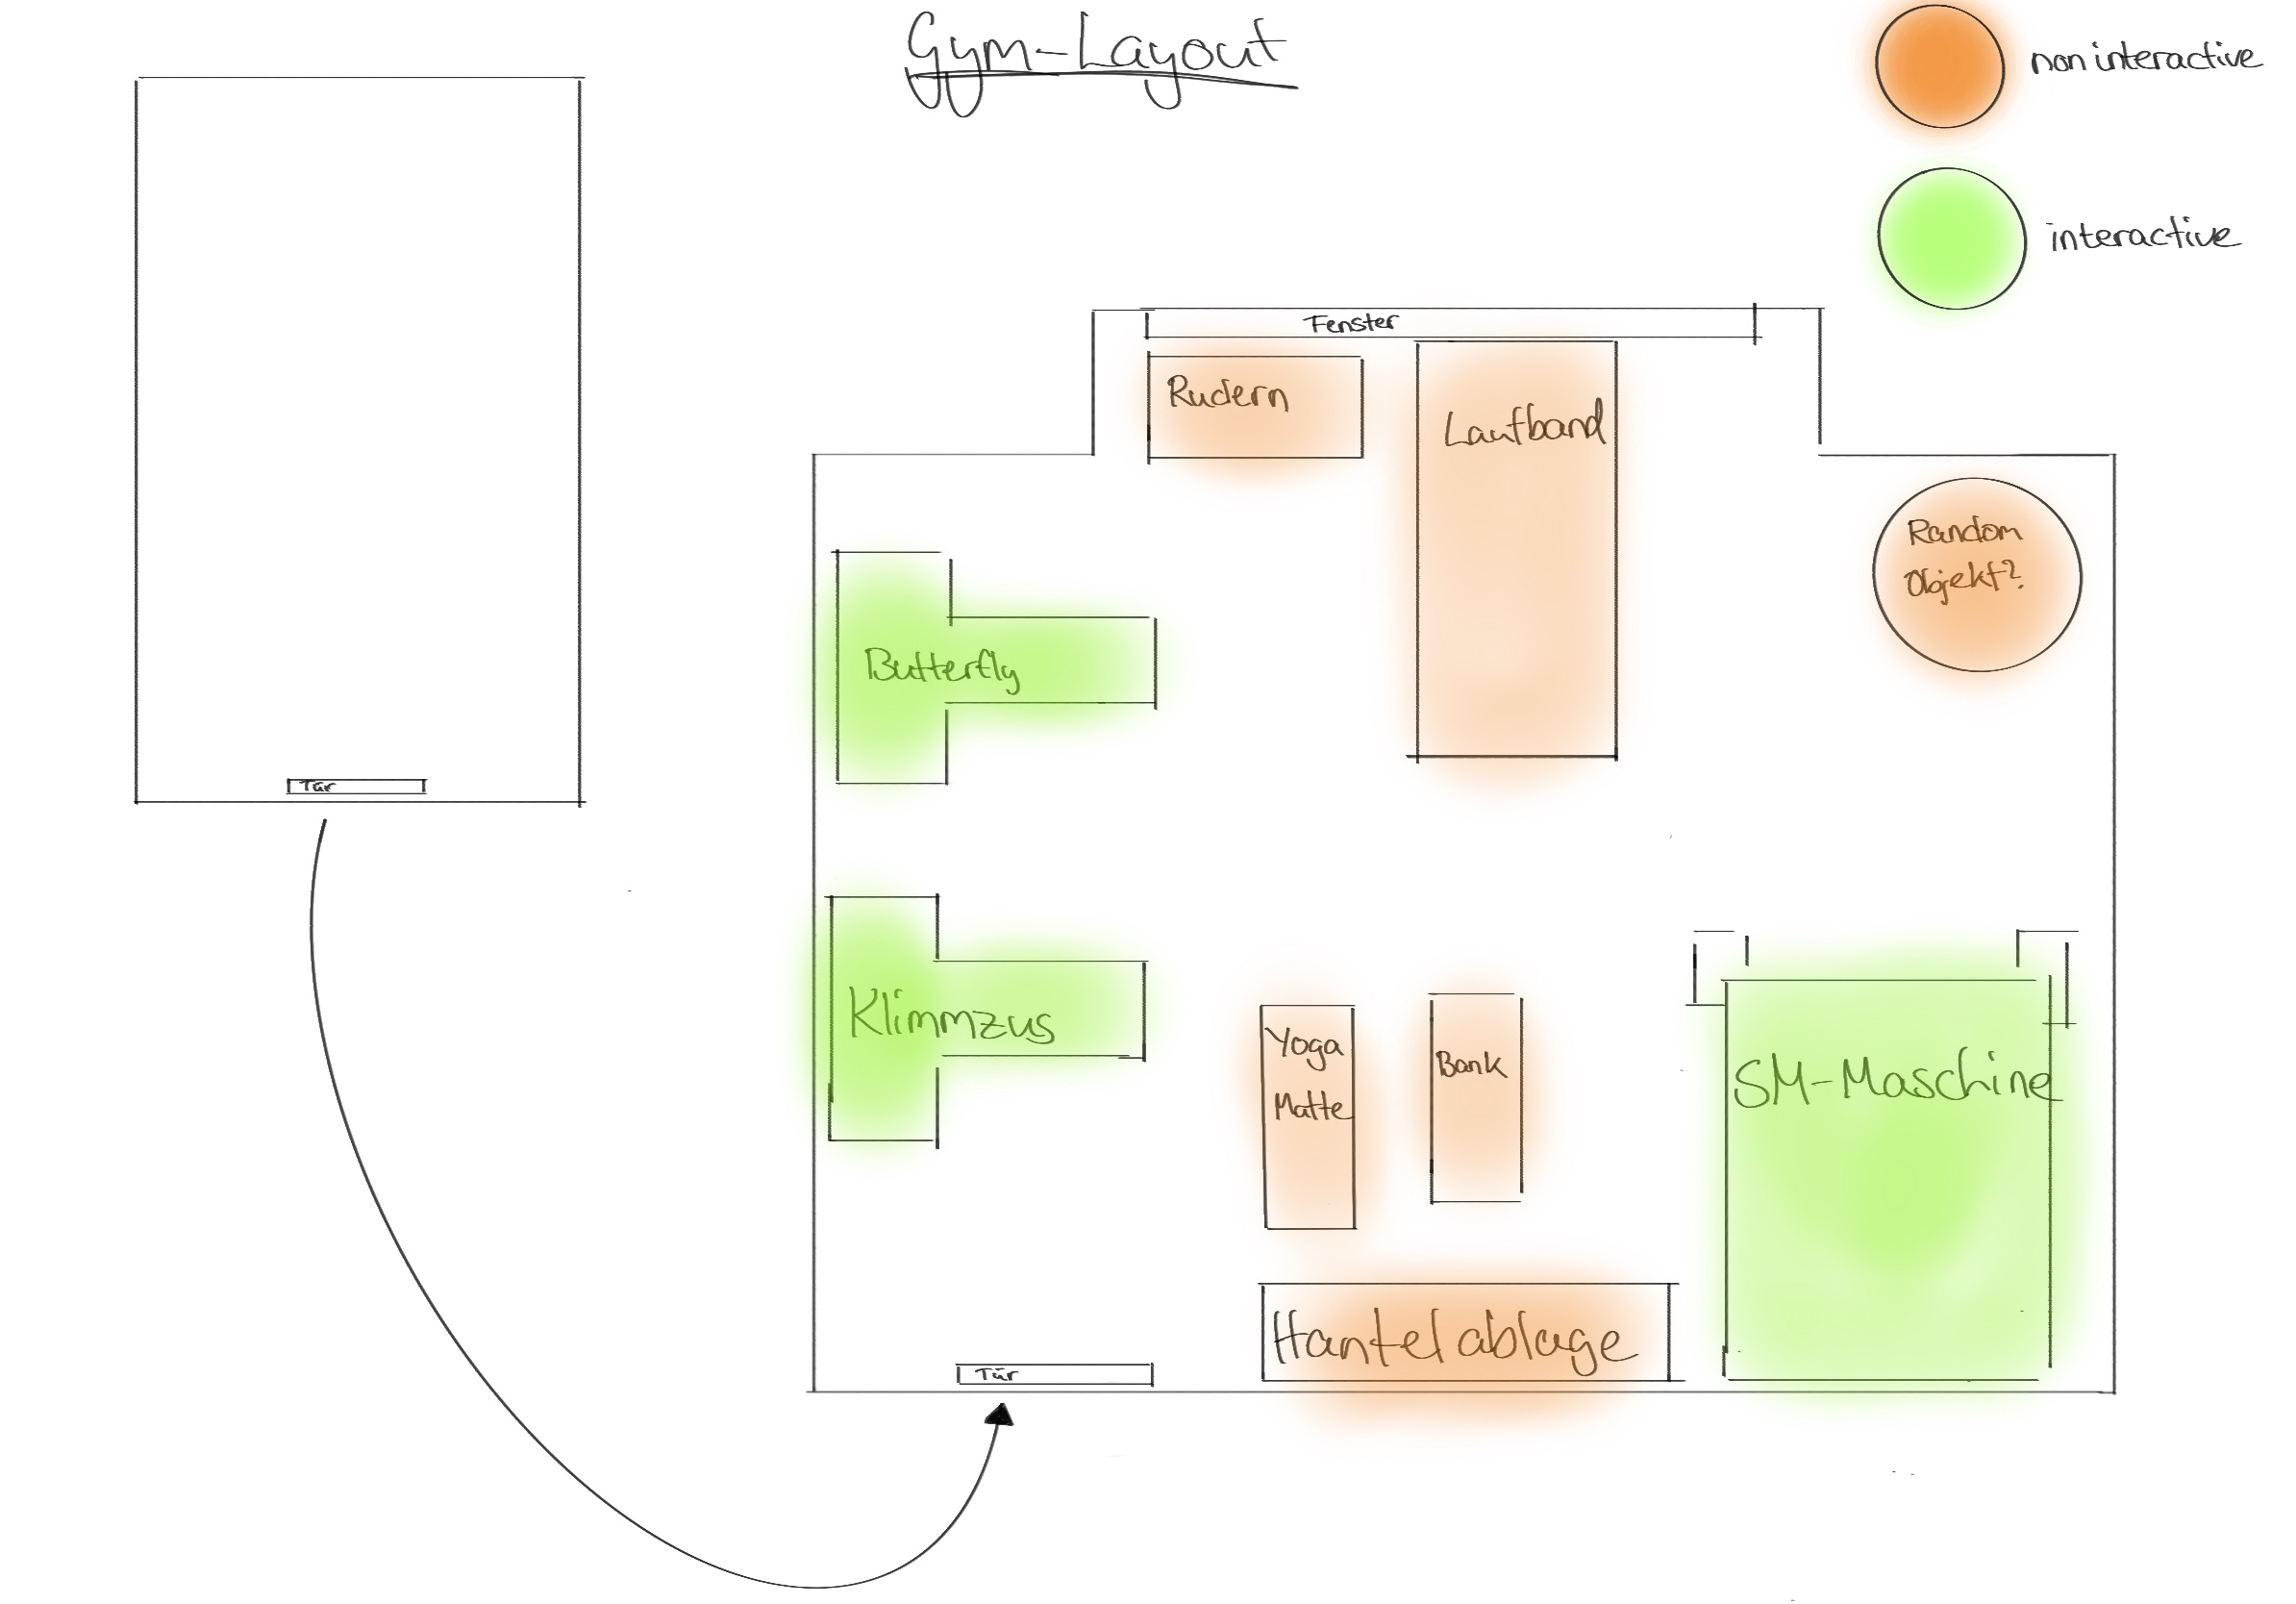 Gym-Layout
non interactive
interactive
Fenster
Rudern
Laufband
Random
Objekt?
Butterfly
Tür
Klimmzus
Yoga
Matte
Bank
SM-Maschine
Hantelablage
Tür